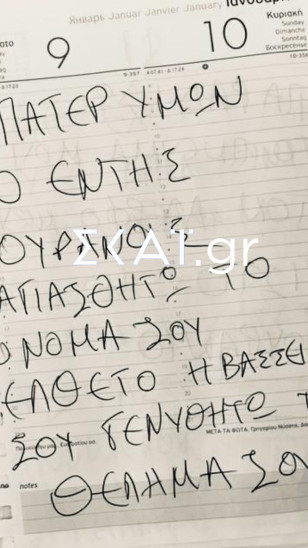 Январь Januar Janvier January
9
10
Κυριακή
Sunday
Dimanche
Sonntag
Воскресенье
9-357
ΠΑΤΕΡ ΥΜΩΝ
Ο ΕΝΤΗΣ
ΟΥΡΑΝΟΙΣ
ΣΚΑΪ.gr
ΑΓΙΑΣΘΗΤΟ ΤΟ
ΟΝΟΜΑ ΣΟΥ
ΕΛΘΕΤΟ Η ΒΑΣΣΕΙ
ΣΟΥ ΓΕΝΥΘΗΤΟ Τ
ΜΕΤΑ ΤΑ ΦΩΤΑ
notes
ΘΕΛΗΜΑ ΣΟ